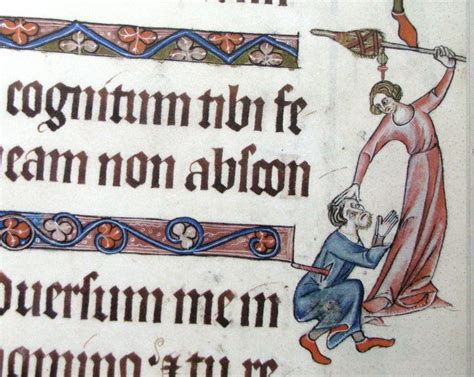 cognitum tibi fe
eam non abscon
duersum me in
tu re